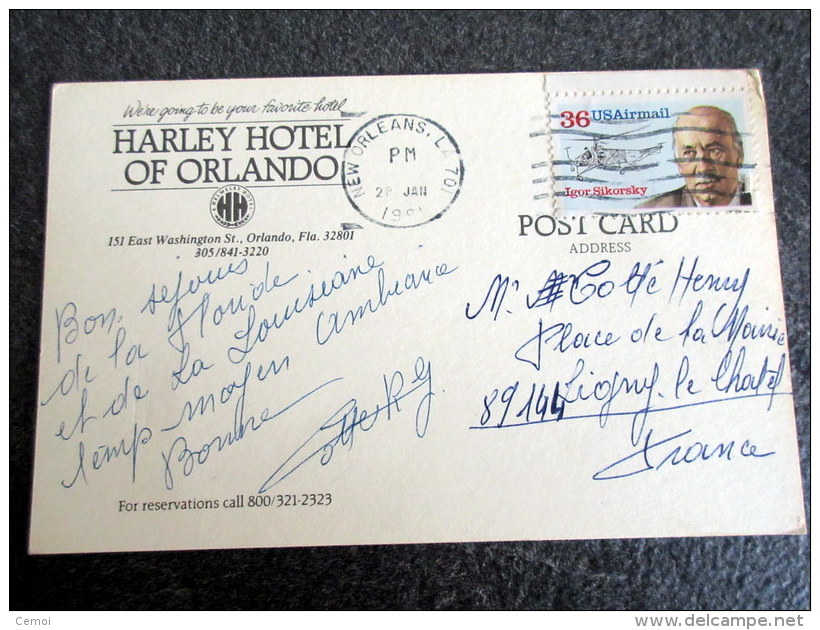 We're going to be your favorite hotel
HARLEY HOTEL
OF ORLANDO
151 East Washington St., Orlando, Fla. 32801
305/841-3220
NEW ORLEANS, LA 701
PM
28 JAN
36 USAirmail
Igor Sikorsky
POST CARD
ADDRESS
Bon séjour
de la Floride
et de La Louisiane
temp moyen ambiance
Bonne
Mr Cotté Henry
Place de la Mairie
89144 Ligny-le Chatel
France
For reservations call 800/321-2323
Cemoi
delcampe.net